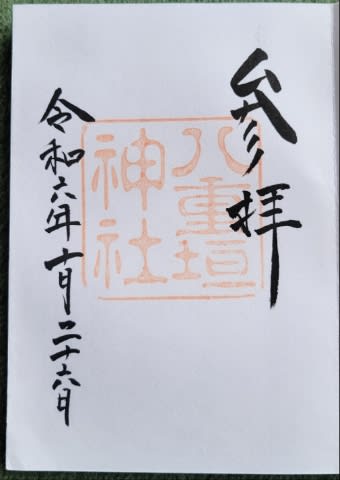 参拝
八重垣
神社
令和六年十月二十六日